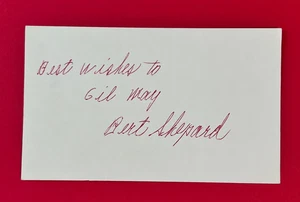 Best Wishes to
Gil May
Bert Shepard